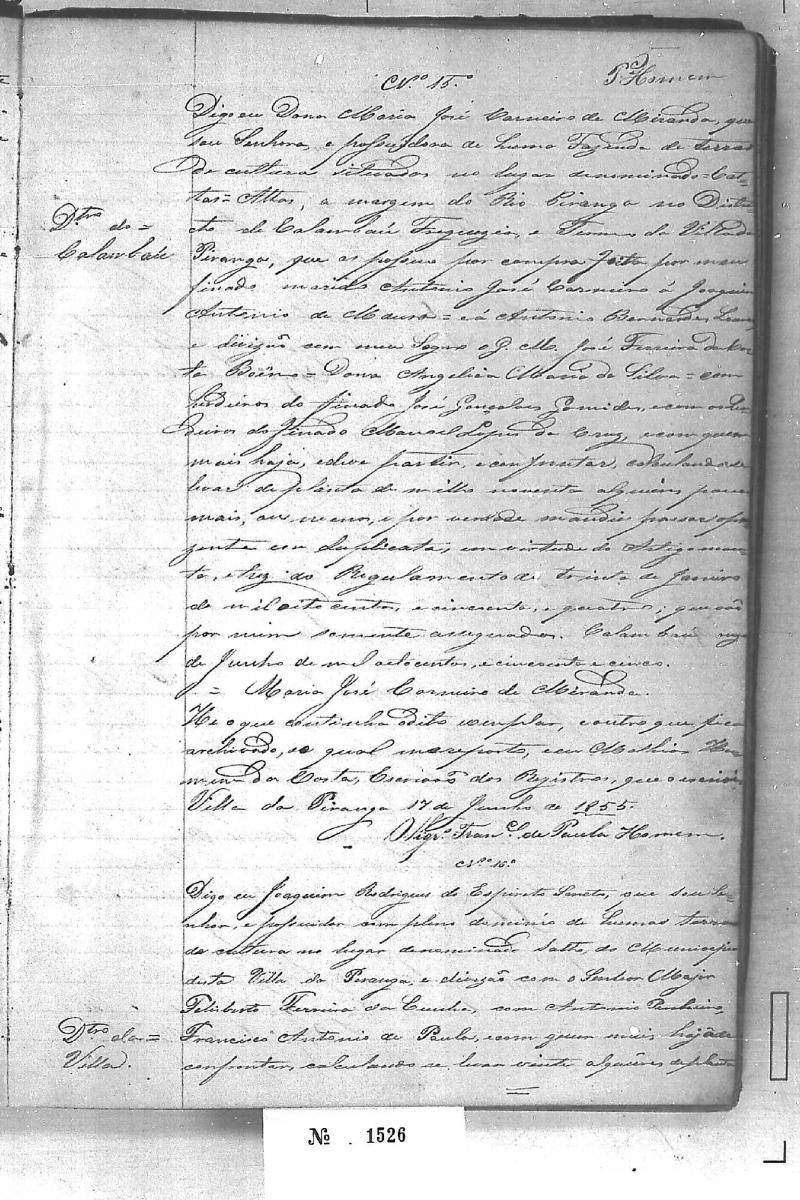 N.º 15.º
P. Homem
Digo eu Dona Maria José Carneiro de Miranda, que
sou Senhora, e possuidora de huma Fazenda de terras
de cultura situadas no lugar denominado = Cat-
tas = Altas, a margem do Rio Piranga no Distri-
D.tro do =
Calambáu
cto de Calambáu Freguezia, e Termo da Villa da
Piranga, que as possuo por compra feita por meu
finado marido Antonio José Carneiro á Joaquim
Antonio de Moura = e á Antonio Bernardes
e divizão com meu Sogro o G. M. José Ferreira da Cos-
ta Boêno = Dona Angelica Maria da Silva = com
herdeiros do finado José Gonçalves Gomides, e com os her-
deiros do finado Manoel Lopes da Cruz, e com quem
mais haja, e deve partir, e confrontar, calculando se
levar de planta de milho noventa alqueires pouco
mais, ou menos, e por verdade mandei passar o pre-
zente em duplicata, em virtude do Artigo noven-
ta, e trez do Regulamento de trinta de Janeiro
de mil oito centos, e cincoenta, e quatro; que vão
por mim somente assignados. Calambáu
de Junho de mil oitocentos, e cincoenta e cinco.
= Maria José Carneiro de Miranda.
He o que continha o dito exemplar, e outro que fica
archivado, ao qual me reporto, e eu Mathias Ho-
mem da Costa, Escrivaõ dos Registros, que o escrevi
Villa da Piranga 17 de Junho de 1855.
O Vigr.º Fran.co de Paula Homem.
N.º 16.º
Digo eu Joaquim Rodrigues do Espirito Sancto, que sou Se-
nhor, e possuidor com pleno dominio de humas terras
de cultura no lugar denominado Salto, do Municipio
desta Villa da Piranga, e divizão com o Senhor Major
Felisberto Ferreira da Cunha, com Antonio Pinheiro,
D.tro da =
Villa.
Francisco Antonio de Paula, e com quem mais haja de
confrontar, calculando se levar vinte alquêires de planta
Nº 1526